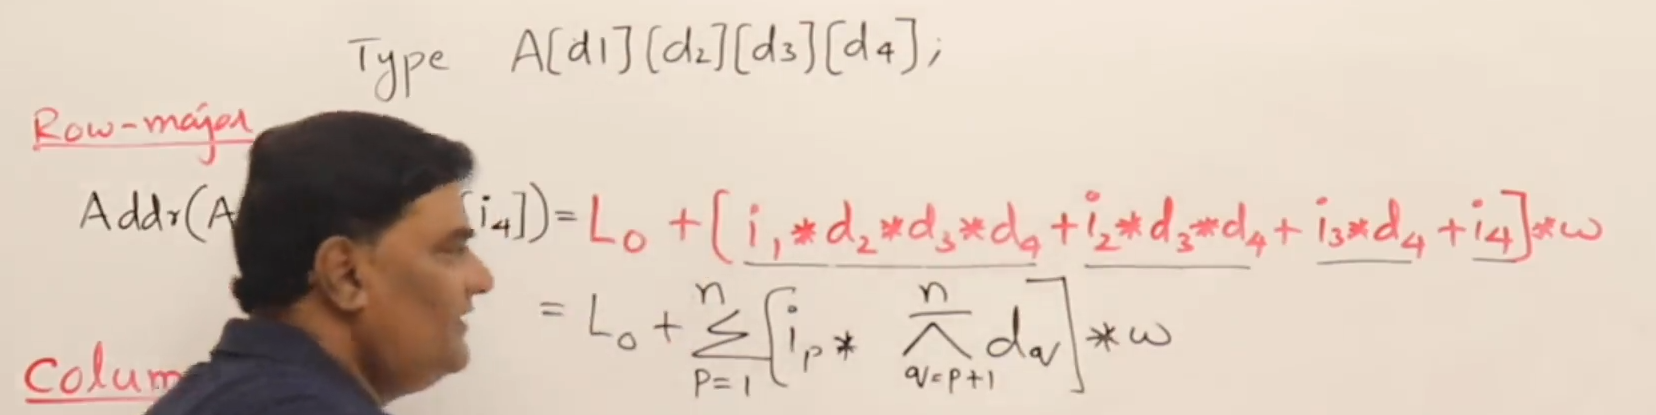 Type A[d1][d2][d3][d4];
Row-major
Addr(A [i4]) = L0 + [i1*d2*d3*d4 + i2*d3*d4 + i3*d4 + i4]*w
= L0 + n Σ p=1 [ip * n Π q=p+1 dq] * w
Colum